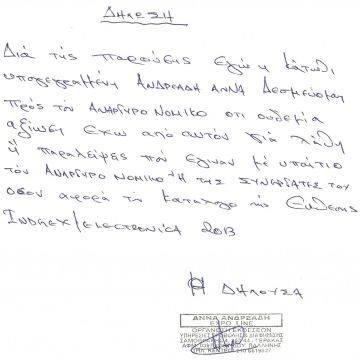 ΔΗΛΩΣΗ
Διά της παρούσης εγώ η κάτωθι
υπογεγραμμένη ΑΝΔΡΕΑΔΗ ΑΝΝΑ Δεσμεύομαι
πρός τον ΑΝΑΡΓΥΡΟ ΝΟΜΙΚΟ οτι ουδεμία
αξίωση έχω από αυτόν για λάθη
ή παραλείψεις που έγιναν με υπαίτιο
τον ΑΝΑΡΓΥΡΟ ΝΟΜΙΚΟ ή της ΣΥΝΕΡΓΑΤΕΣ του
όσον αφορά το κατάλογο της Εκθέσης
INDGEX/ELECTRONICA 2013
Η ΔΗΛΟΥΣΑ
ΑΝΝΑ ΑΝΔΡΕΑΔΗ
EXPO LINE
ΟΡΓΑΝΩΣΗ ΕΚΘΕΣΕΩΝ
ΥΠΗΡΕΣΙΕΣ ΠΡΟΒΟΛΗΣ ΔΙΑΦΗΜΙΣΗΣ
ΣΑΜΟΘΡΑΚΗΣ ΓΕΡΑΚΑΣ
ΠΑΛΛΗΝΗΣ